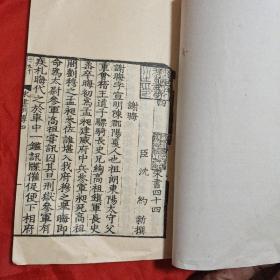 宋書四十四
臣沈約新撰
謝晦
謝晦字宣明陳郡陽夏人也祖朗東陽太守父
重會稽王道子驃騎長史兄絢高祖鎮軍長史
蚤卒晦初爲孟昶建威府中兵參軍昶死高祖
問劉穆之孟昶參佐誰堪入我府穆之舉晦即
命爲太尉參軍高祖嘗訊囚其旦刑獄參軍有
疾札晦代之於車中一鑑訊牒催促便下相府